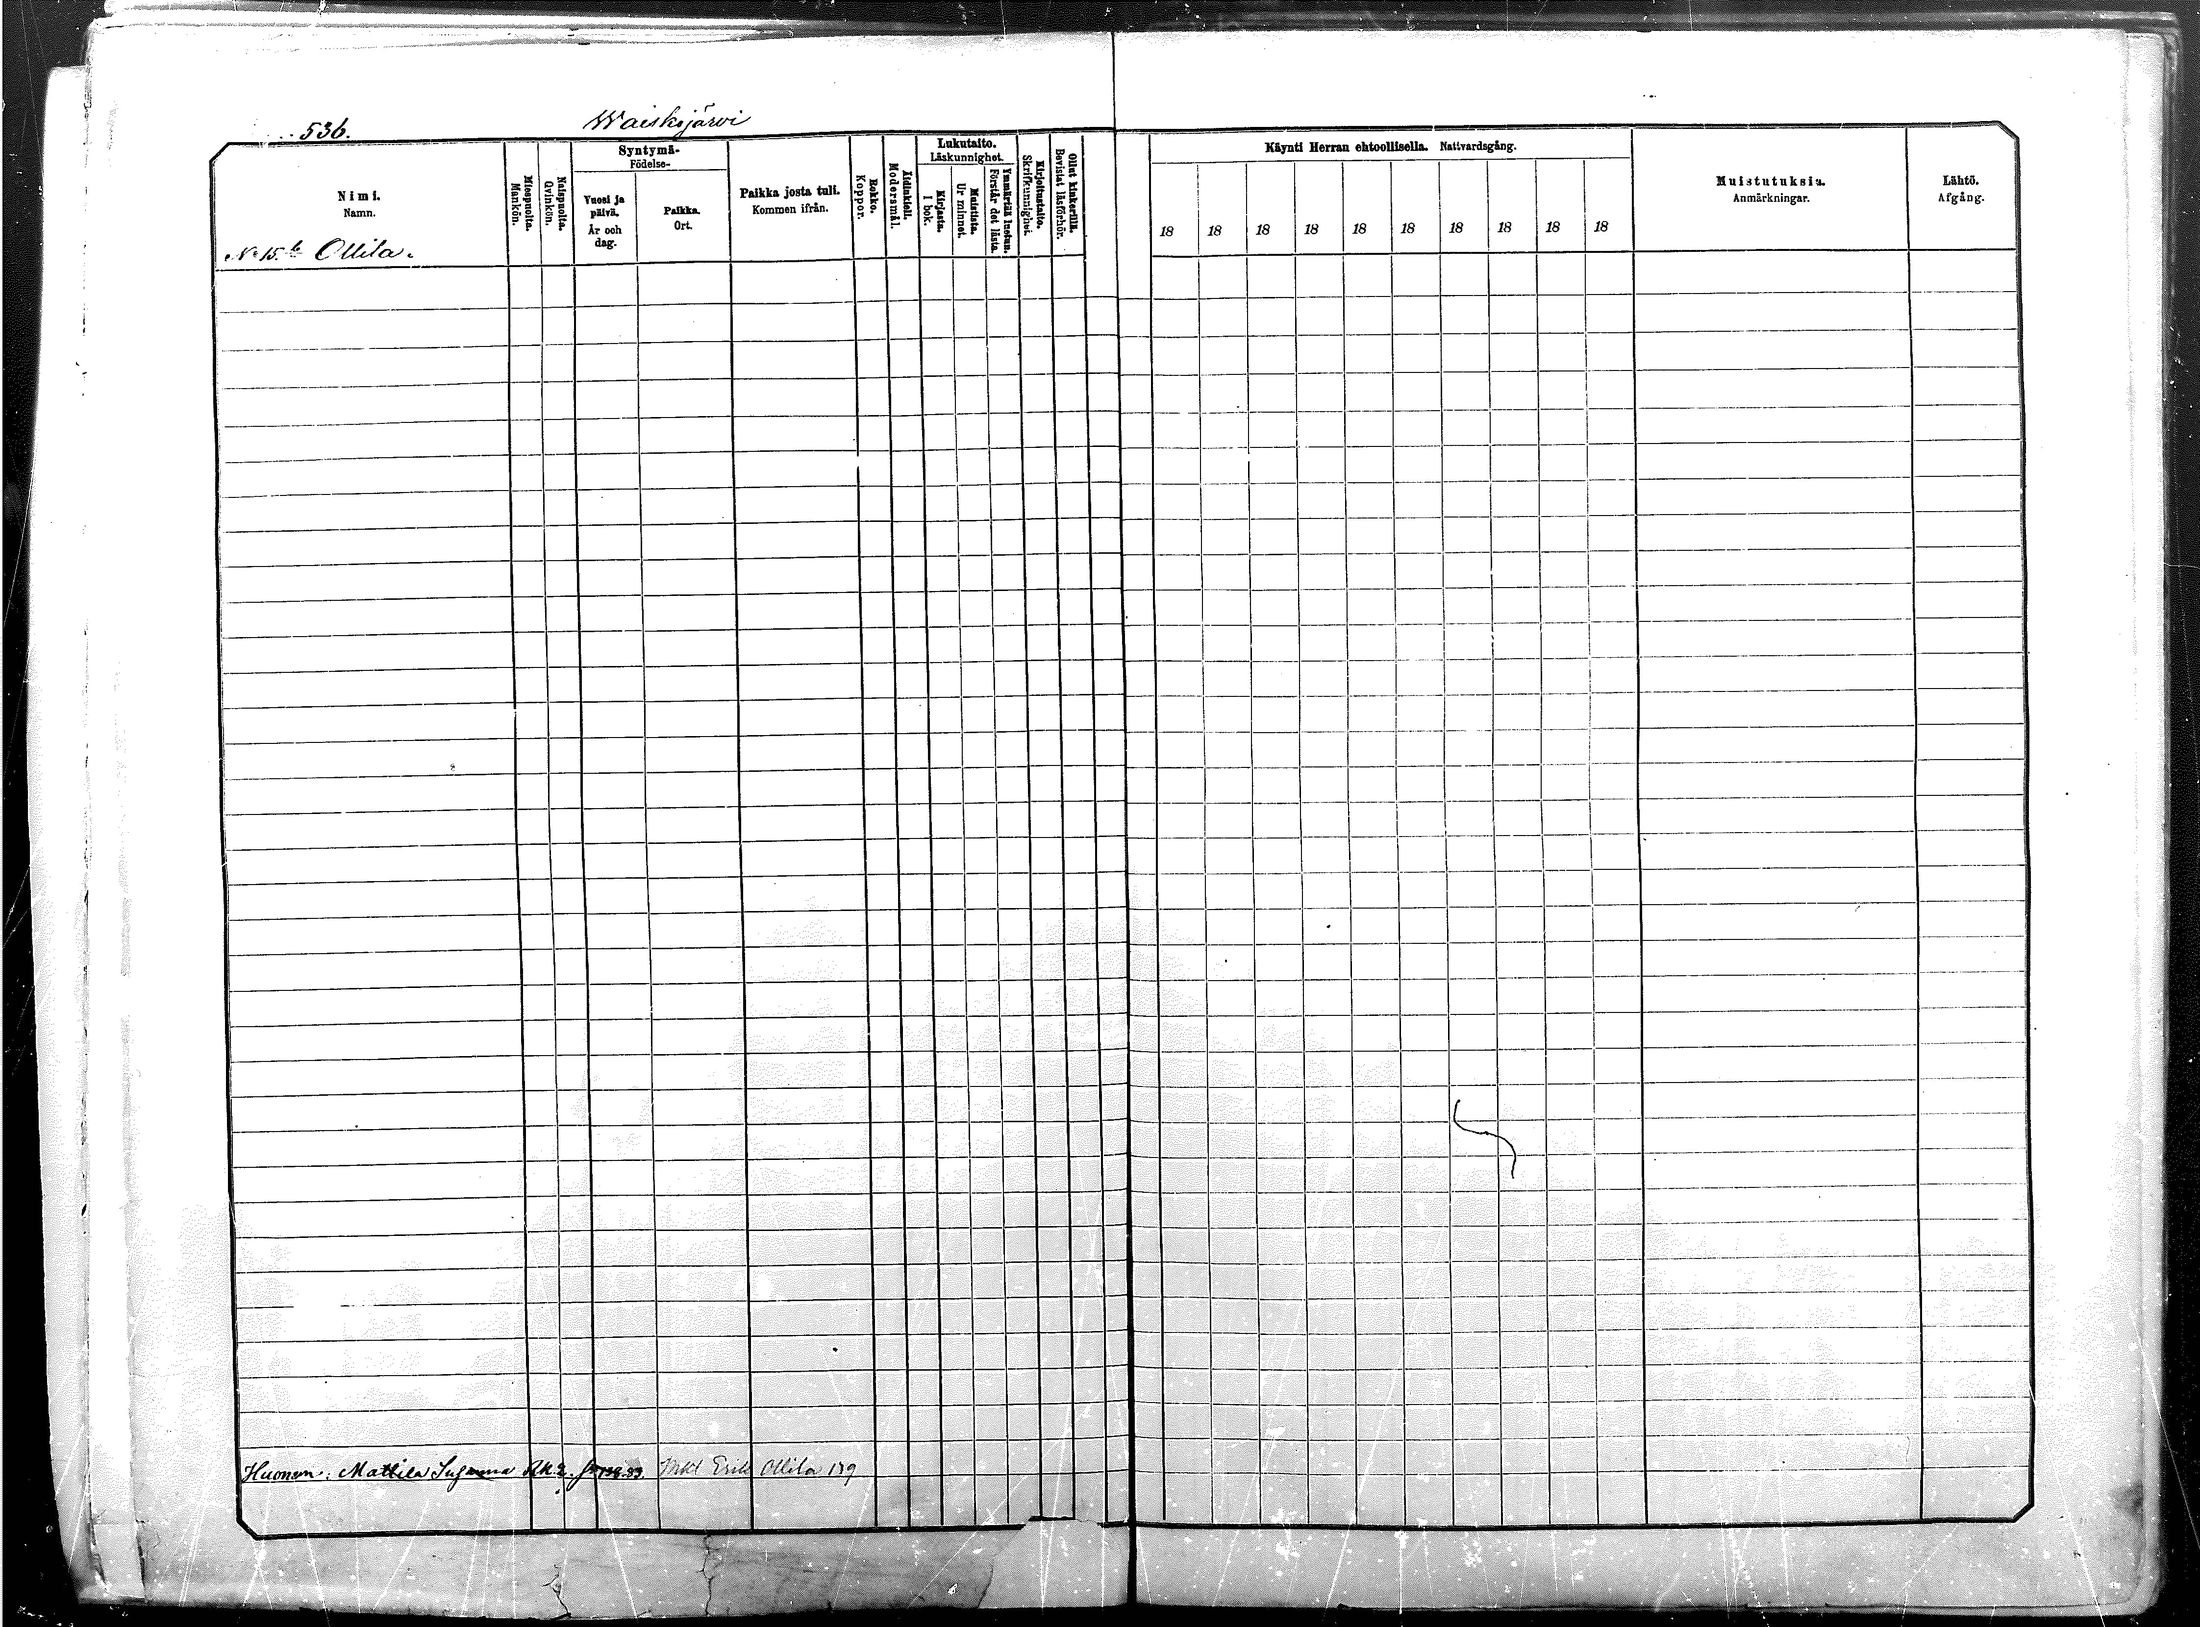 536.
Waiskojärwi
Nimi.
Namn.
Miespuolta.
Mankön.
Naispuolta.
Qvinkön.
Syntymä-
Födelse-
Vuosi ja
päivä.
År och
dag.
Paikka.
Ort.
Paikka josta tuli.
Kommen ifrån.
Rokko.
Koppor.
Äidinkieli.
Modersmål.
Lukutaito.
Läskunnighet.
Kirjasta.
I bok.
Muistista.
Ur minnet.
Ymmärtää luetun.
Förstår det lästa.
Kirjoitustaito.
Skrifkunnighet.
Ollut kinkerillä.
Bevistat läsförhör.
Käynti Herran ehtoollisella. Nattvardsgång.
18 18 18 18 18 18 18 18 18 18
Muistutuksia.
Anmärkningar.
Lähtö.
Afgång.
No 15. b Ollila.
Huonen: Mattila Susanna Erik Ollila 139